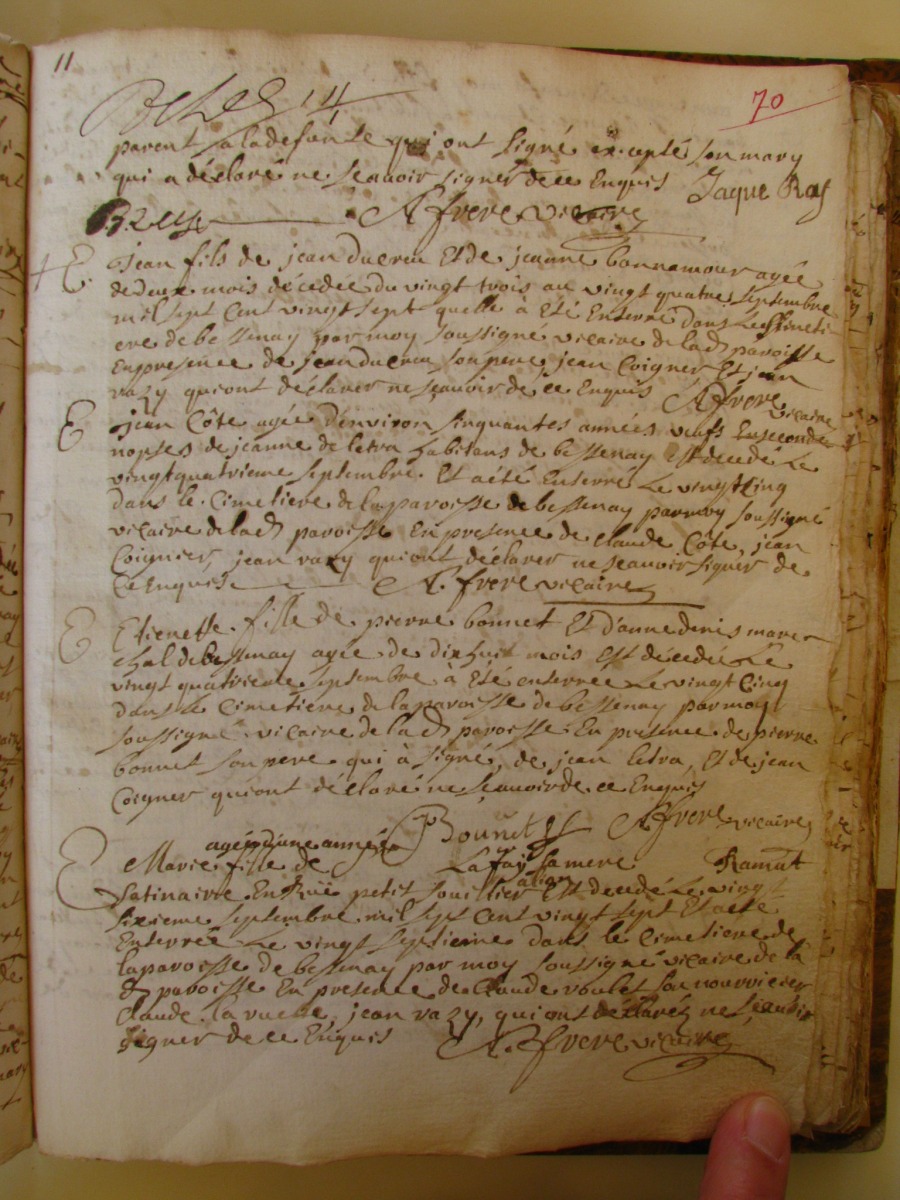 11
70
parent a la defunte qui ont signé excepté son mary
qui a déclaré ne sçavoir signer de ce Enquis Jaque Ray
A frere vicaire
E jean fils de jean ducreu Et de jeanne bonnamour agée
de deux mois décedée du vingt trois au vingt quatre septembre
mil sept Cent vingt sept quelle à Eté Enterré dans le Cimeti
ere de bessenay par moy soussigné vicaire de lad paroisse
En presence de jean ducreu son pere, jean Coigner Et jean
razy qui ont déclarer ne sçavoir de ce Enquis A frere vicaire
E jean Côte agée d'environ sinquantes années veufs En seconde
nopses de jeanne de letra habitans de bessenay Est decedé Le
vingt quatrieme septembre. Et a été Enterré Le vingt Cinq
dans le Cimetiere de la paroisse de bessenay par moy soussigné
vicaire de lad paroisse En presence de Claude Côte, jean
Coignier, jean razy qui ont déclarer ne sçavoir signer de
Ce Enquise A. frere vicaire
E Etienette fille de pierre bonnet Et d'anne denis mare
chal de bessenay agée de dix huit mois Est décedée Le
vingt quatrieme septembre à Eté enterrée Le vingt Cinq
dans le Cimetiere de la paroisse de bessenay par moy
soussigné vicaire de lad paroisse En presence de pierre
bonnet son pere qui à signé, de jean letra, Et de jean
Coigner qui ont déclaré ne sçavoir de ce Enquis
P Bounet A frere vicaire
agée d'une année
E Marie fille de La fay sa mere Ramat
Satinaire En Ruë petit souillier Est decedé Le vingt
sixieme septembre mil sept Cent vingt sept Et a eté
Enterrée Le vingt septieme dans le Cimetiere de
la paroisse de bessenay par moy soussigné vicaire de la
d paroisse En presence de Claude voulet son nourricier
Claude la rueue, jean razy, qui ont déclaréz ne sçavoir
signer de ce Enquis A. frere vicaire